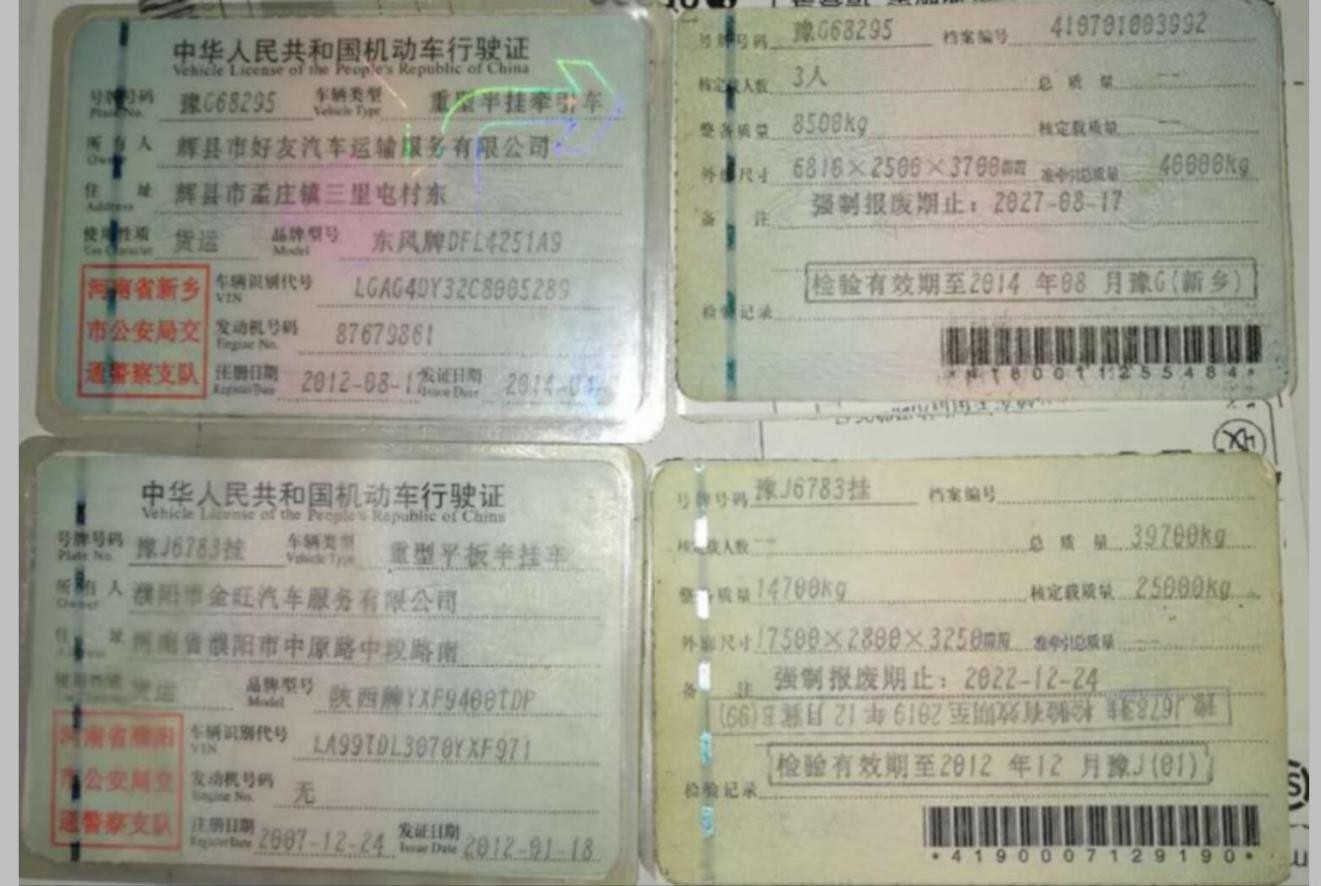 中华人民共和国机动车行驶证
Vehicle License of the People's Republic of China
号牌号码 豫G68295 车辆类型 重型半挂牵引车
Plate No. Vehicle Type
所有人 辉县市好友汽车运输服务有限公司
Owner
住址 辉县市孟庄镇三里屯村东
Address
使用性质 货运 品牌型号 东风牌DFL4251A9
Use Character Model
河南省新乡
市公安局交
通警察支队
车辆识别代号 LGAG4DY32C8005289
VIN
发动机号码 87679861
Engine No.
注册日期 2012-08-17 发证日期 2014-
Register Date Issue Date
号牌号码 豫G68295 档案编号 410701003992
核定载人数 3人 总质量 --
整备质量 8500kg 核定载质量 --
外廓尺寸 6810×2500×3700mm 准牵引总质量 40000kg
备注 强制报废期止：2027-08-17
检验有效期至2014 年08 月豫G(新乡)
检验记录
*4180011255484*
中华人民共和国机动车行驶证
Vehicle License of the People's Republic of China
号牌号码 豫J6783挂 车辆类型 重型平板半挂车
Plate No. Vehicle Type
所有人 濮阳市金旺汽车服务有限公司
Owner
住址 河南省濮阳市中原路中段路南
Address
使用性质 货运 品牌型号 陕西牌YXF9400TDP
Model
河南省濮阳
市公安局交
通警察支队
车辆识别代号 LA99TDL3070YXF971
VIN
发动机号码 无
Engine No.
注册日期 2007-12-24 发证日期 2012-01-18
Register Date Issue Date
号牌号码 豫J6783挂 档案编号
核定载人数 -- 总质量 39700kg
整备质量 14700kg 核定载质量 25000kg
外廓尺寸 17500×2800×3250mm 准牵引总质量 --
备注 强制报废期止：2022-12-24
检验有效期至2012 年12 月豫J(01)
检验记录
*4190007129190*